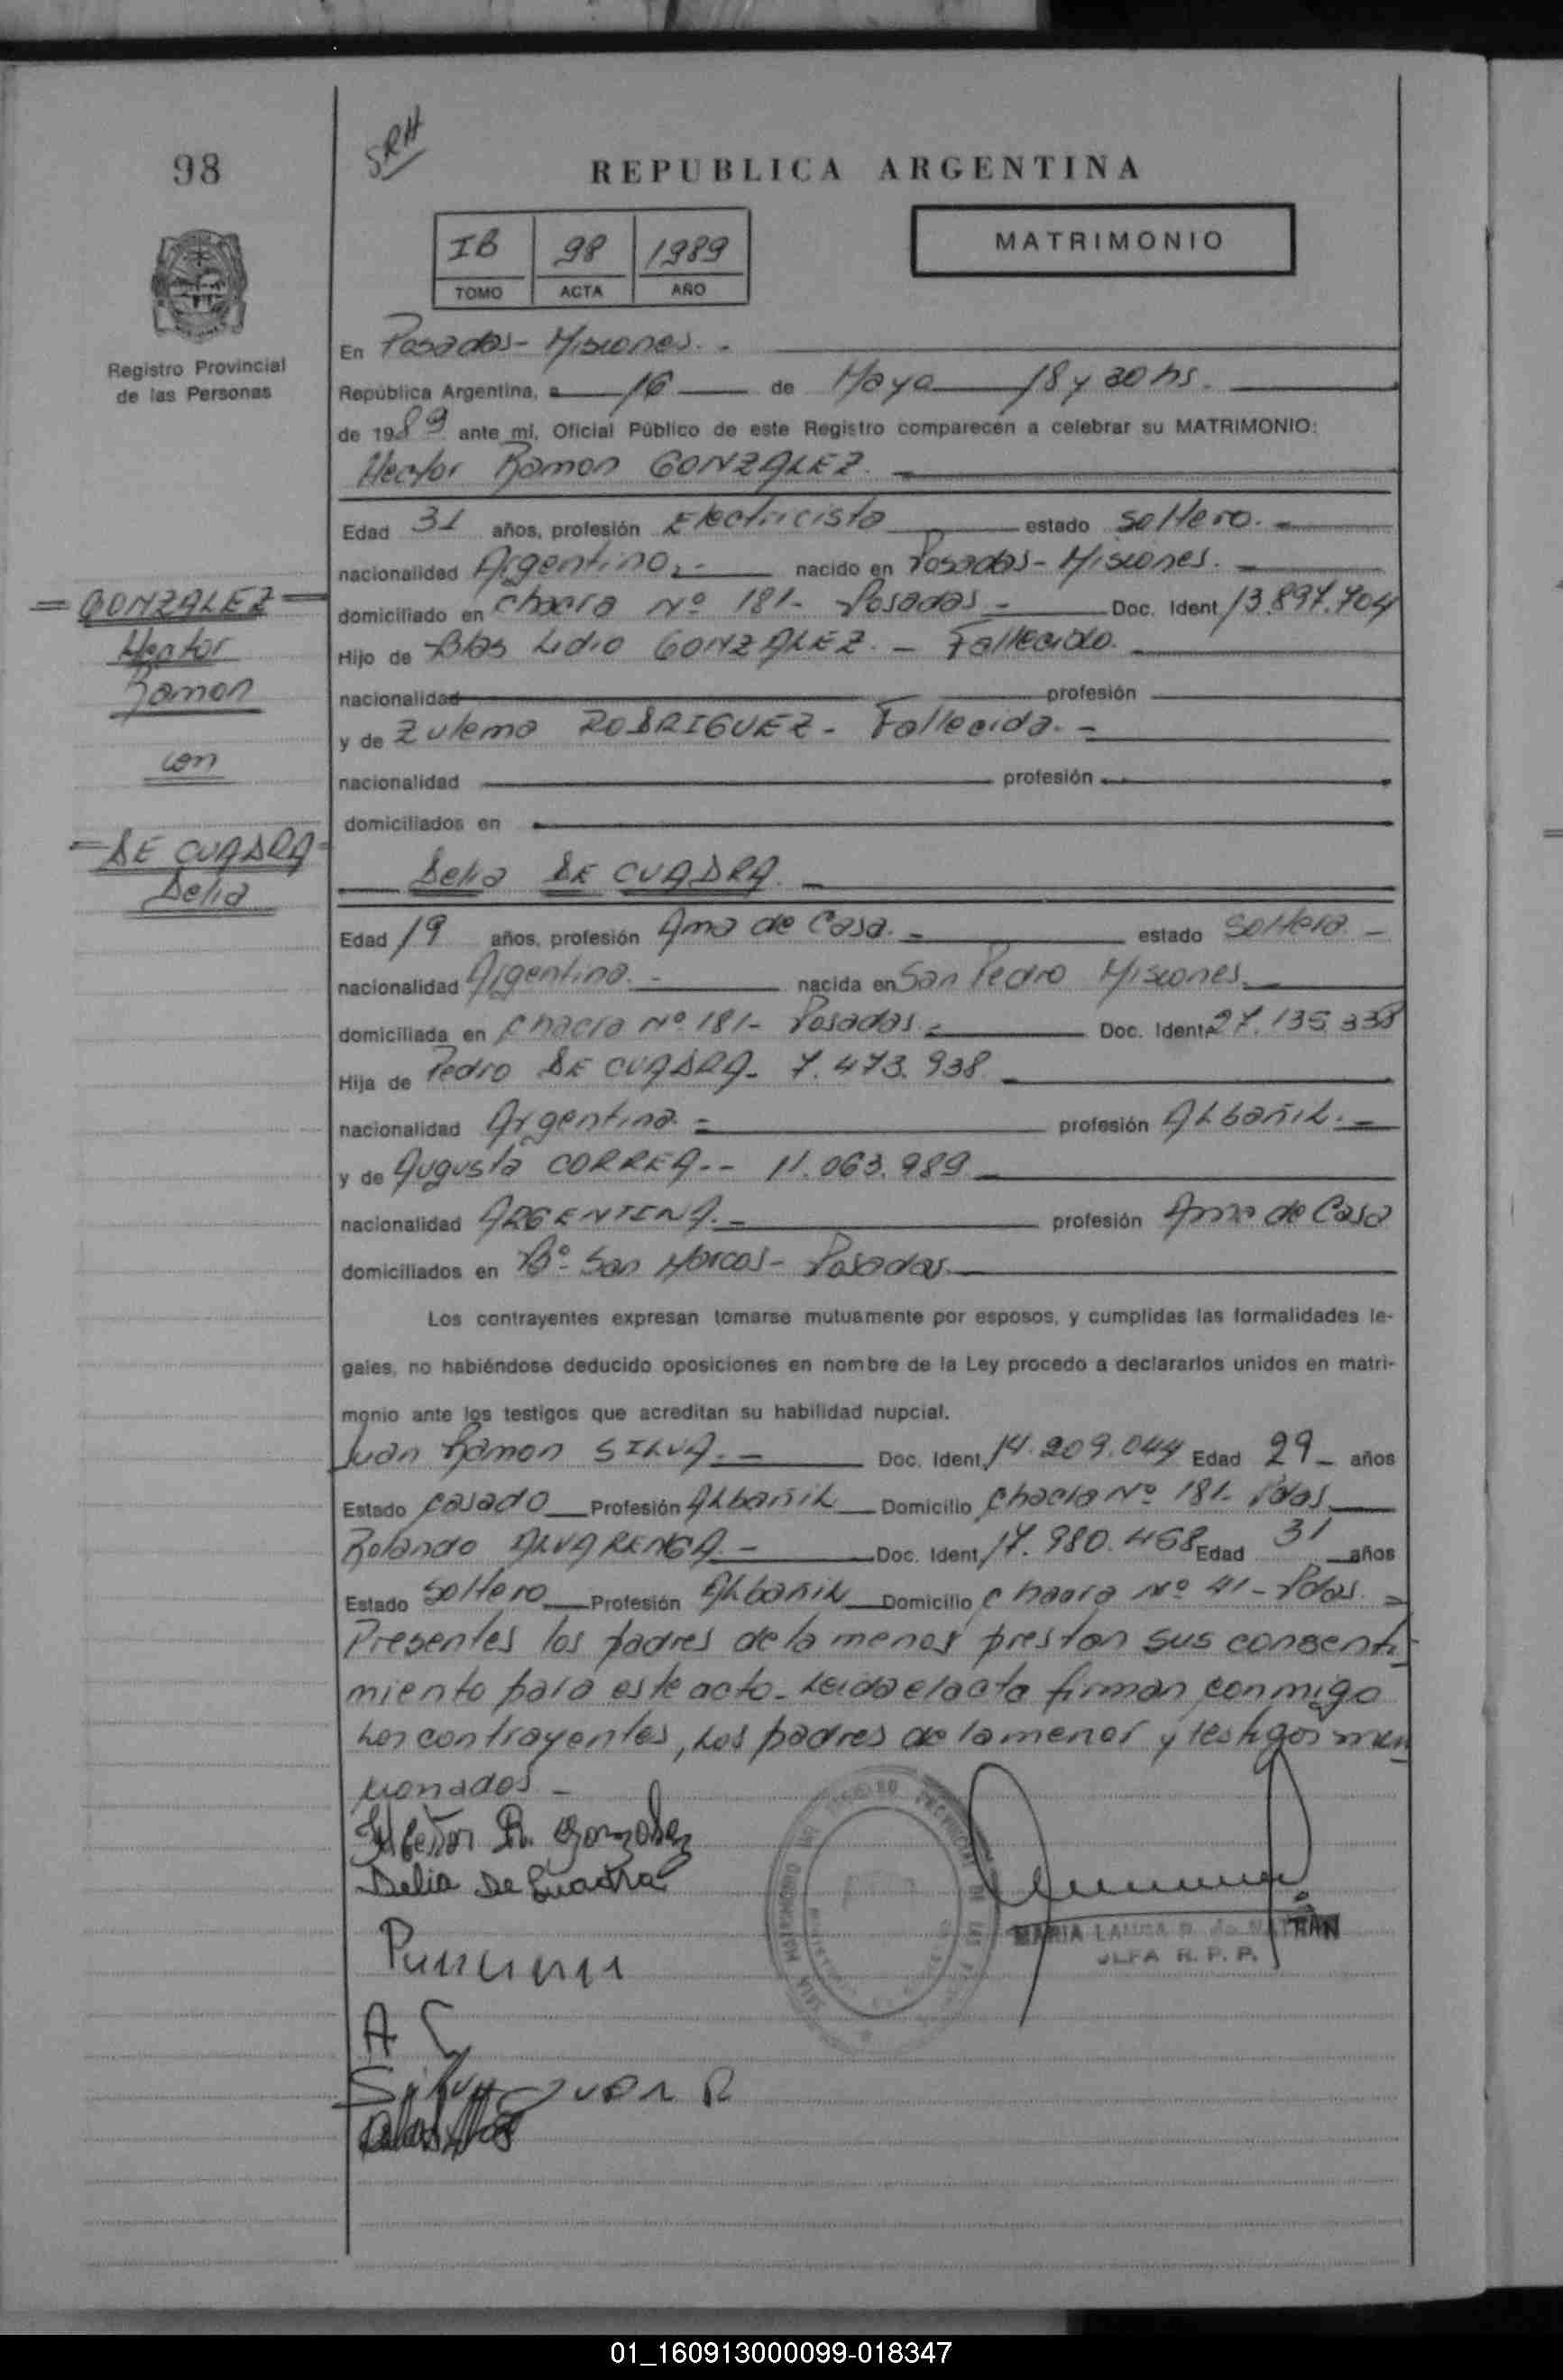 98
SRH
REPUBLICA ARGENTINA
IB 98 1989
TOMO ACTA AÑO
MATRIMONIO
Registro Provincial
de las Personas
En Posadas - Misiones. -
República Argentina, a 16 de Mayo 18 y 30 hs.
de 1989 ante mí, Oficial Público de este Registro comparecen a celebrar su MATRIMONIO:
Hector Ramon GONZALEZ. -
Edad 31 años, profesión Electricista estado soltero. -
nacionalidad Argentino. - nacido en Posadas - Misiones. -
domiciliado en chacra Nº 181 - Posadas - Doc. Ident 13.897.704
Hijo de Blas Lidio GONZALEZ. - Fallecido.
nacionalidad profesión
y de Zulema RODRIGUEZ - Fallecida. -
nacionalidad profesión
domiciliados en
= GONZALEZ =
Hector
Ramon
con
= DE CUADRA =
Delia
Delia DE CUADRA. -
Edad 19 años, profesión Ama de Casa. - estado Soltera -
nacionalidad Argentina. - nacida en San Pedro Misiones.
domiciliada en chacra Nº 181 - Posadas. - Doc. Ident 27.135.338
Hija de Pedro DE CUADRA - 7.473.938
nacionalidad Argentina - profesión Albañil. -
y de Augusta CORREA. - - 11.063.989
nacionalidad ARGENTINA. - profesión Ama de Casa
domiciliados en Bº San Marcos - Posadas
Los contrayentes expresan tomarse mutuamente por esposos, y cumplidas las formalidades le-
gales, no habiéndose deducido oposiciones en nombre de la Ley procedo a declararlos unidos en matri-
monio ante los testigos que acreditan su habilidad nupcial.
Juan Ramon SILVA. - Doc. Ident 14.209.044 Edad 29 - años
Estado casado Profesión Albañil Domicilio chacra Nº 181 - Pdas.
Rolando ALVARENGA. - Doc. Ident 17.980.468 Edad 31 años
Estado Soltero Profesión Albañil Domicilio chacra Nº 41 - Pdas. =
Presentes los padres de la menor prestan sus consenti-
miento para este acto - Leida el acta firman conmigo
Los contrayentes, Los padres de la menor y testigos men
cionados -
Hector R. Gonzalez
Delia De Cuadra
A C
Silva Juan R
MARIA LAURA
R. P. P.
01_160913000099-018347